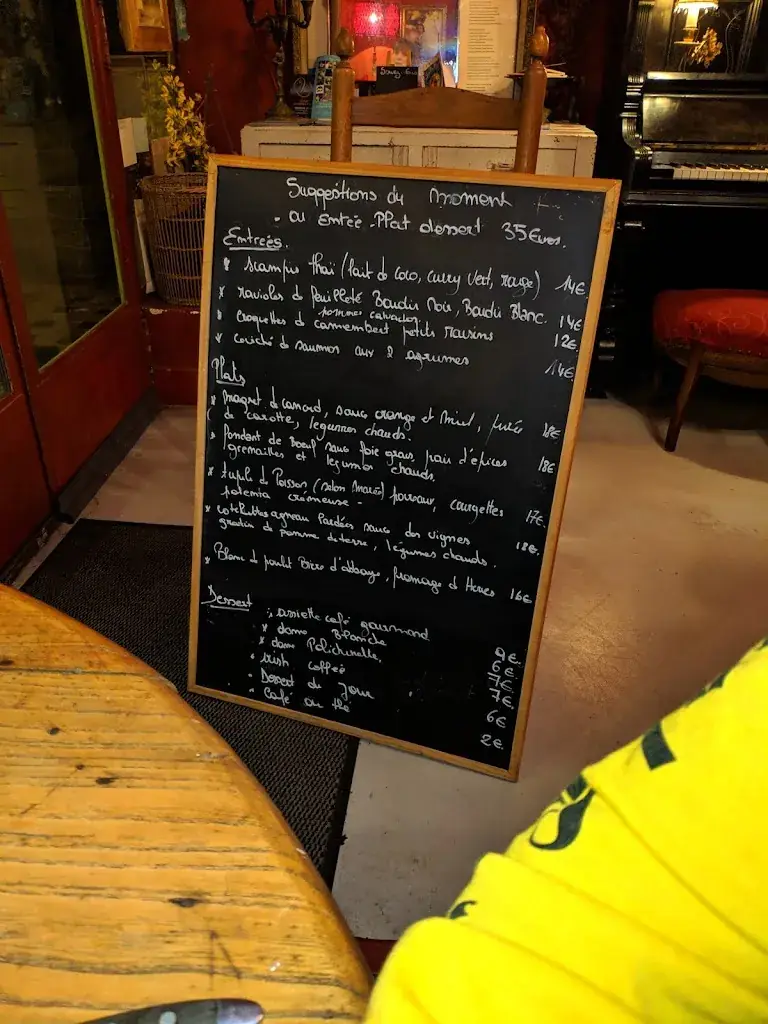 Suggestions du moment
- ou Entrée-Plat dessert 35 Euros.
Entrées.
* scampis thaï (lait de coco, curry vert, rouge) 14€
* ravioles de feuilleté Boudin Noir, Boudin Blanc. 14€
pommes calvados
* croquettes de camembert petits raisins 12€
* saumon aux 2 agrumes 14€
Plats
* magret de canard, sauce orange et miel, purée 18€
de carotte, legumes chauds.
* Fondant de Boeuf sauce foie gras, pain d'épices 18€
grenailles et legumes chauds.
* de Poisson (selon Marché) poireaux, courgettes 17€.
polenta crémeuse -
* cotelettes agneau Lardées sauce des vignes 18€.
gratin de pomme de terre, légumes chauds.
* Blanc de poulet Bière d'abbaye, fromage de Herve 16€
Dessert
* assiette café gourmand 9€
* dame Blanche 6€
* dame 7€
* irish coffee 7€
* Dessert du Jour 6€
* Café ou thé 2€